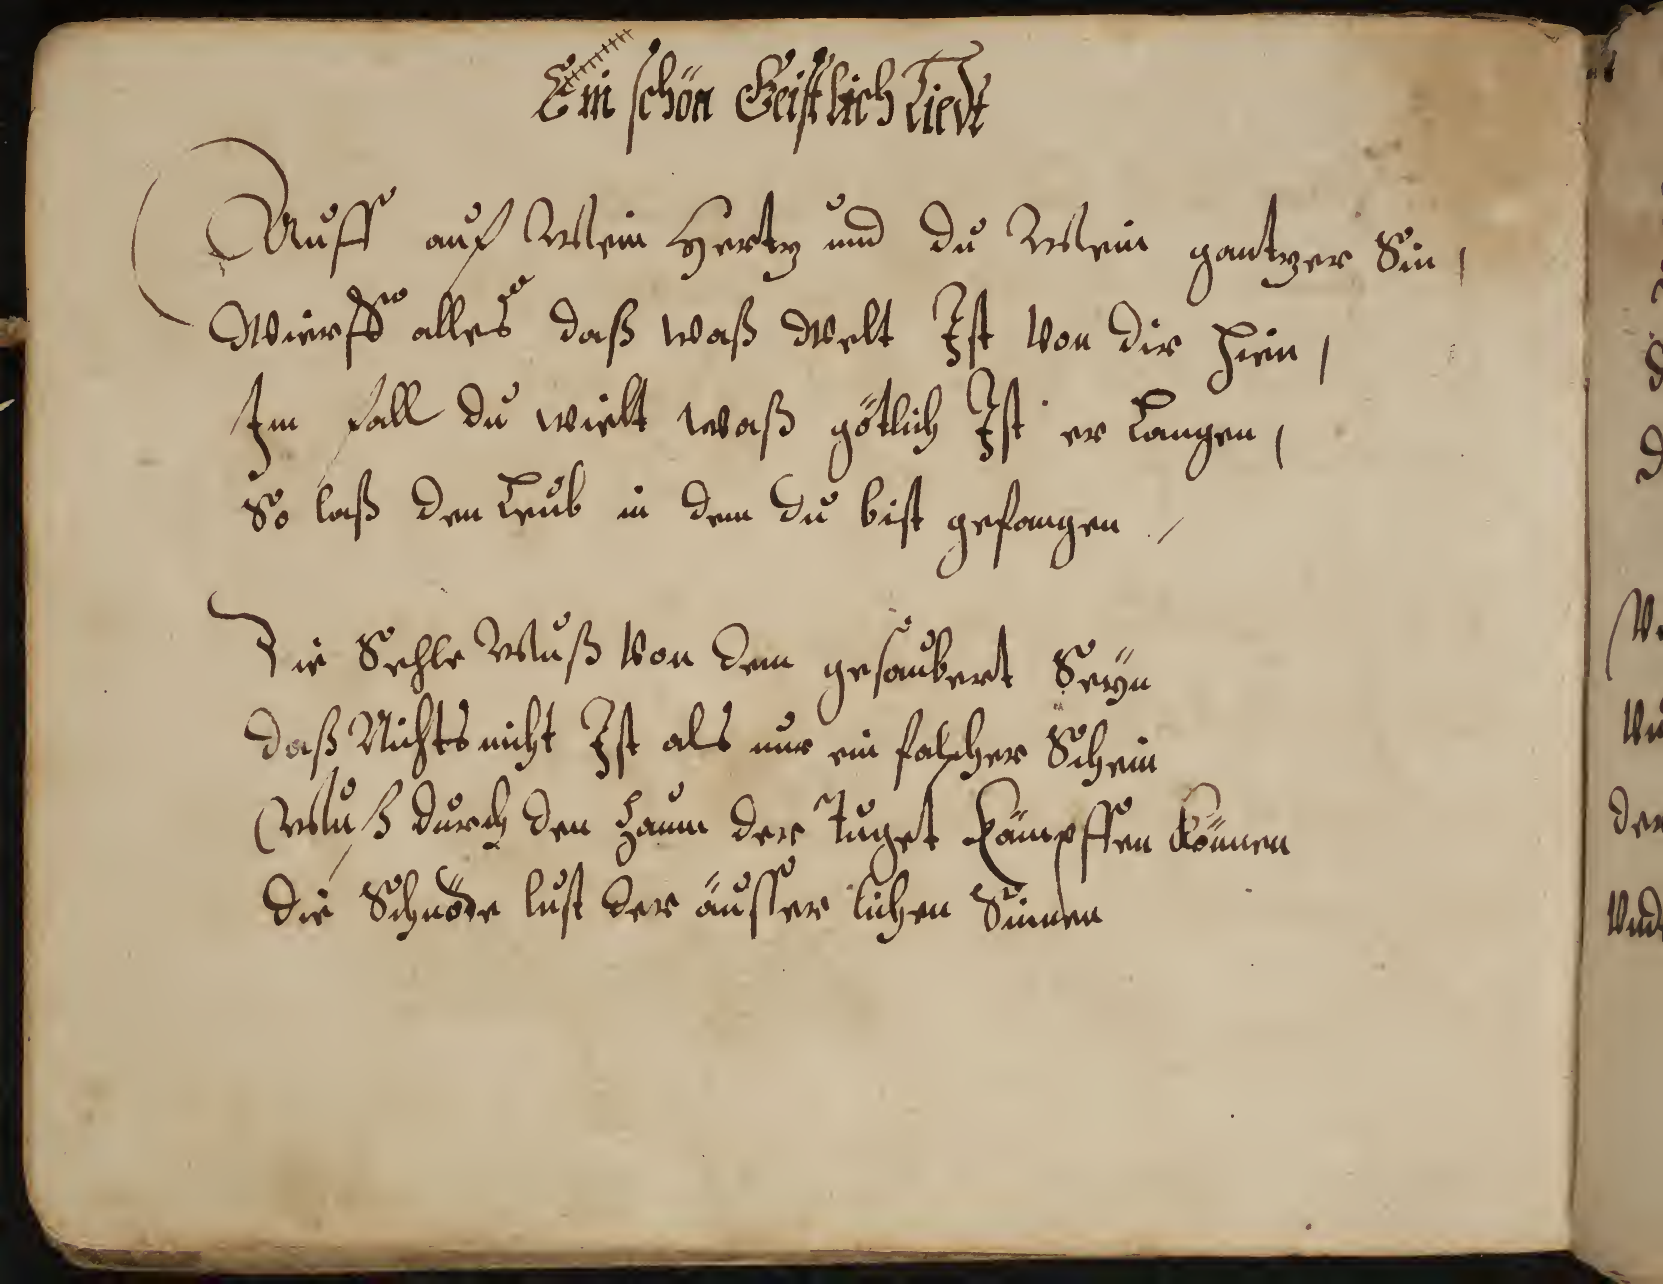 Ein schön Geistlich Liedt
Auff auf Mein Hertz und du Mein gantzer Sin /
Wierff alles daß waß Welt Ist Von dir hien /
Im fall du wielt waß götlich Ist er Langen /
So laß den Leub in dem du bist gefangen /
Die Sehle Muß Von dem gesaubert Seÿn
daß Nichts nicht Ist als nur ein falscher Schein
Muß durch den Zaum der Tuget kämpffen können
die Schnöde lust der äusser lichen Sinnen